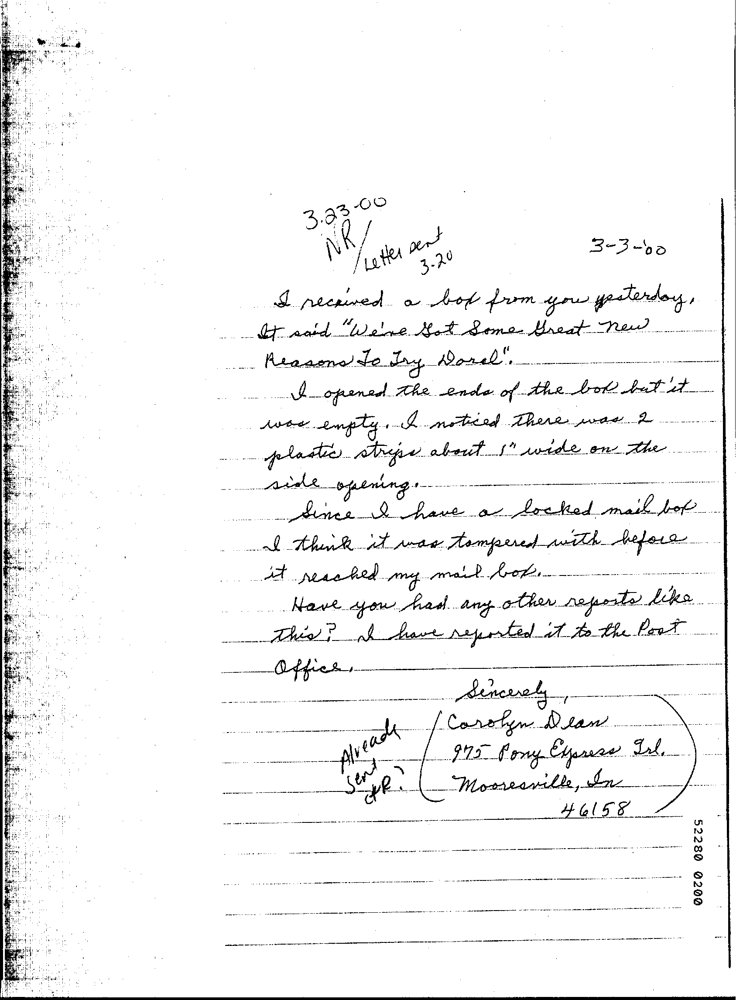 3.23-00
NR/
Letter sent
3-20
3-3-'00
I received a box from you yesterday.
It said "We've Got Some Great New
Reasons To Try Doral".
I opened the ends of the box but it
was empty. I noticed there was 2
plastic strips about 1" wide on the
side opening.
Since I have a locked mail box
I think it was tampered with before
it reached my mail box.
Have you had any other reports like
this? I have reported it to the Post
Office.
Sincerely,
Carolyn Dean
975 Pony Express Trl.
Mooresville, In
46158
Already
Sent
52280 0200